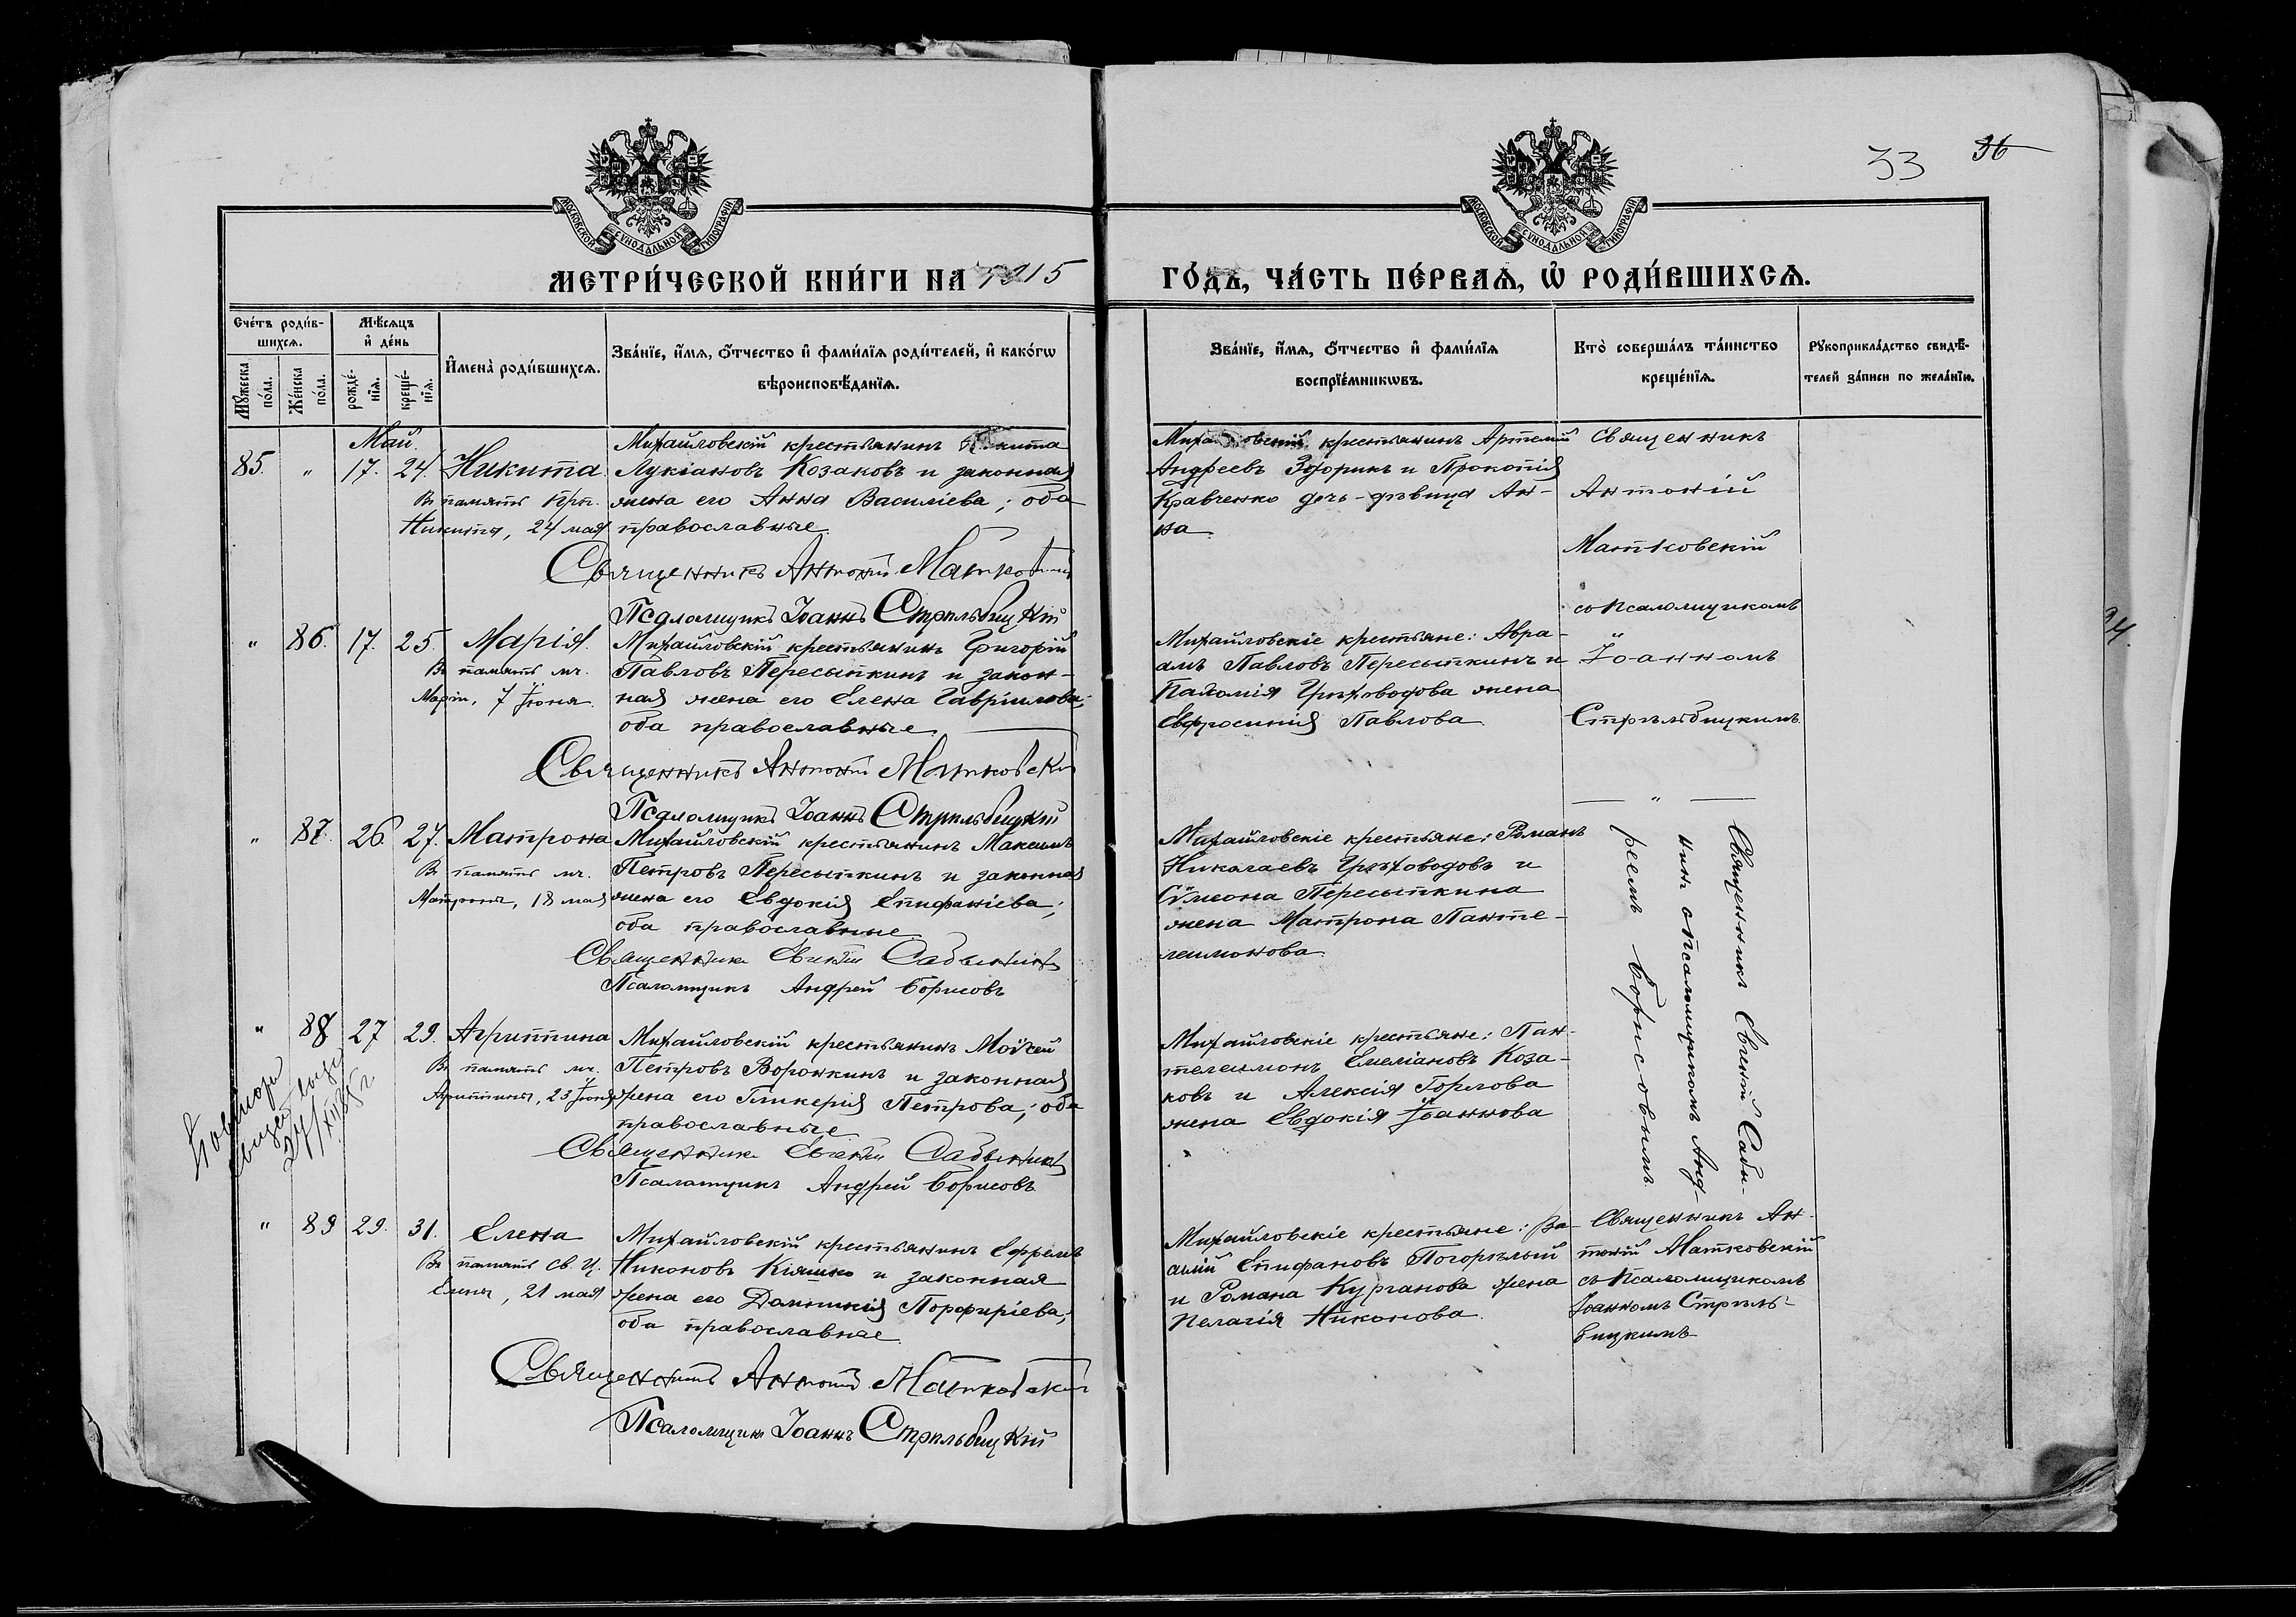 33 36
МОСКОВСКОЙ СѴНОДАЛЬНОЙ ТИПОГРАФІИ
МОСКОВСКОЙ СѴНОДАЛЬНОЙ ТИПОГРАФІИ
МЕТРИ́ЧЕСКОЙ КНИ́ГИ НА 1915
ГО́ДЪ, ЧА́СТЬ ПЕ́РВАѦ, Ѽ РОДИ́ВШИХСѦ.
Сче́тъ роди́в-
шихсѧ.
Мѣ́сѧцъ
и҆ де́нь
Мꙋ́жеска
по́ла.
Же́нска
по́ла.
рожде́-
нїѧ.
креще́-
нїѧ.
И҆мена̀ роди́вшихсѧ.
Зва́нїе, и҆́мѧ, ѻ҆́тчество и҆ фами́лїѧ роди́телей, и҆ како́гѡ
вѣроисповѣ́данїѧ.
Зва́нїе, и҆́мѧ, ѻ҆́тчество и҆ фами́лїѧ
воспрїе́мникѡвъ.
Кто̀ соверша́лъ та́инство
креще́нїѧ.
Рꙋкоприкла́дство свидѣ́-
телей за́писи по жела́нїю.
Май.
85. " 17. 24. Никита
Въ память прп.
Никиты, 24 мая
Михайловскій крестьянинъ Никита
Лукіановъ Козаковъ и законная
жена его Анна Василіева; оба
православные.
Священникъ Антоній Матковскій
Псаломщикъ Іоаннъ Стрѣльбицкій
Михайловскій крестьянинъ Артемій
Андреевъ и Прокопія
Кравченко дочь-дѣвица Ан-
на
Священникъ
Антоній
Матковскій
со псаломщикомъ
" 86. 17. 25. Марія
Въ память мч.
Маріи, 7 Іюня.
Михайловскій крестьянинъ Григорій
Павловъ Пересыпкинъ и закон-
ная жена его Елена Гавріилова;
оба православные
Священникъ Антоній Матковскій
Псаломщикъ Іоаннъ Стрѣльбицкій
Михайловскіе крестьяне: Авра-
амъ Павловъ Пересыпкинъ и
Пахомія Грѣховодова жена
Евфросинія Павлова
"
Іоанномъ
Стрѣльбицкимъ
— " —
" 87. 26. 27. Матрона
Въ память мч.
Матроны, 18 мая
Михайловскій крестьянинъ Максимъ
Петровъ Пересыпкинъ и законная
жена его Евдокія Епифаніева;
оба православные
Священникъ Евгеній
Псаломщикъ Андрей Борисовъ
Михайловскіе крестьяне: Романъ
Николаевъ Грѣховодовъ и
Сѵмеона Пересыпкина
жена Матрона Панте-
леимонова
Священникъ Евгеній
никъ съ псаломщикомъ Анд-
реемъ Борисовымъ
" 88 27 29. Агриппина
Въ память мч.
Агриппины, 23 Іюня
24/XII 35 г.
Михайловскій крестьянинъ Моѵсей
Петровъ Ворожкинъ и законная
жена его Гликерія Петрова; оба
православные
Священникъ Евгеній
Псаломщикъ Андрей Борисовъ
Михайловскіе крестьяне: Пан-
телеимонъ Емеліановъ Коза-
ковъ и Алексія Горлова
жена Евдокія Іоаннова
" 89 29. 31. Елена
Въ память св. Ц.
Елены, 21 мая
Михайловскій крестьянинъ Ефремъ
Никоновъ Кіяшко и законная
жена его Домникія Порфиріева;
оба православные
Священникъ Антоній Матковскій
Псаломщикъ Іоаннъ Стрѣльбицкій
Михайловскіе крестьяне: Ва-
силій Епифановъ Погорѣлый
и Романа Курганова жена
Пелагія Никонова
Священникъ Ан-
тоній Матковскій
съ псаломщикомъ
Іоанномъ Стрѣль-
бицкимъ